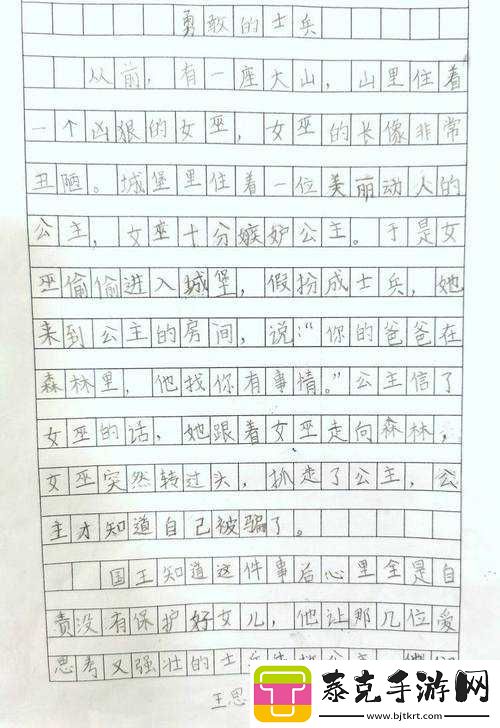 勇敢的士兵
从前，有一座大山，山里住着
一个凶狠的女巫，女巫的长像非常
丑陋。城堡里住着一位美丽动人的
公主，女巫十分嫉妒公主。于是女
巫偷偷进入城堡，假扮成士兵，她
来到公主的房间，说：“你的爸爸在
森林里，他找你有事情。”公主信了
女巫的话，她跟着女巫走向森林，
女巫突然转过头，抓走了公主，公
主才知道自己被骗了。
国王知道这件事后心里全是自
责没有保护好女儿，他让那几位爱
思考又强壮的士兵
王思
泰克手游网
www.bjtkrt.com